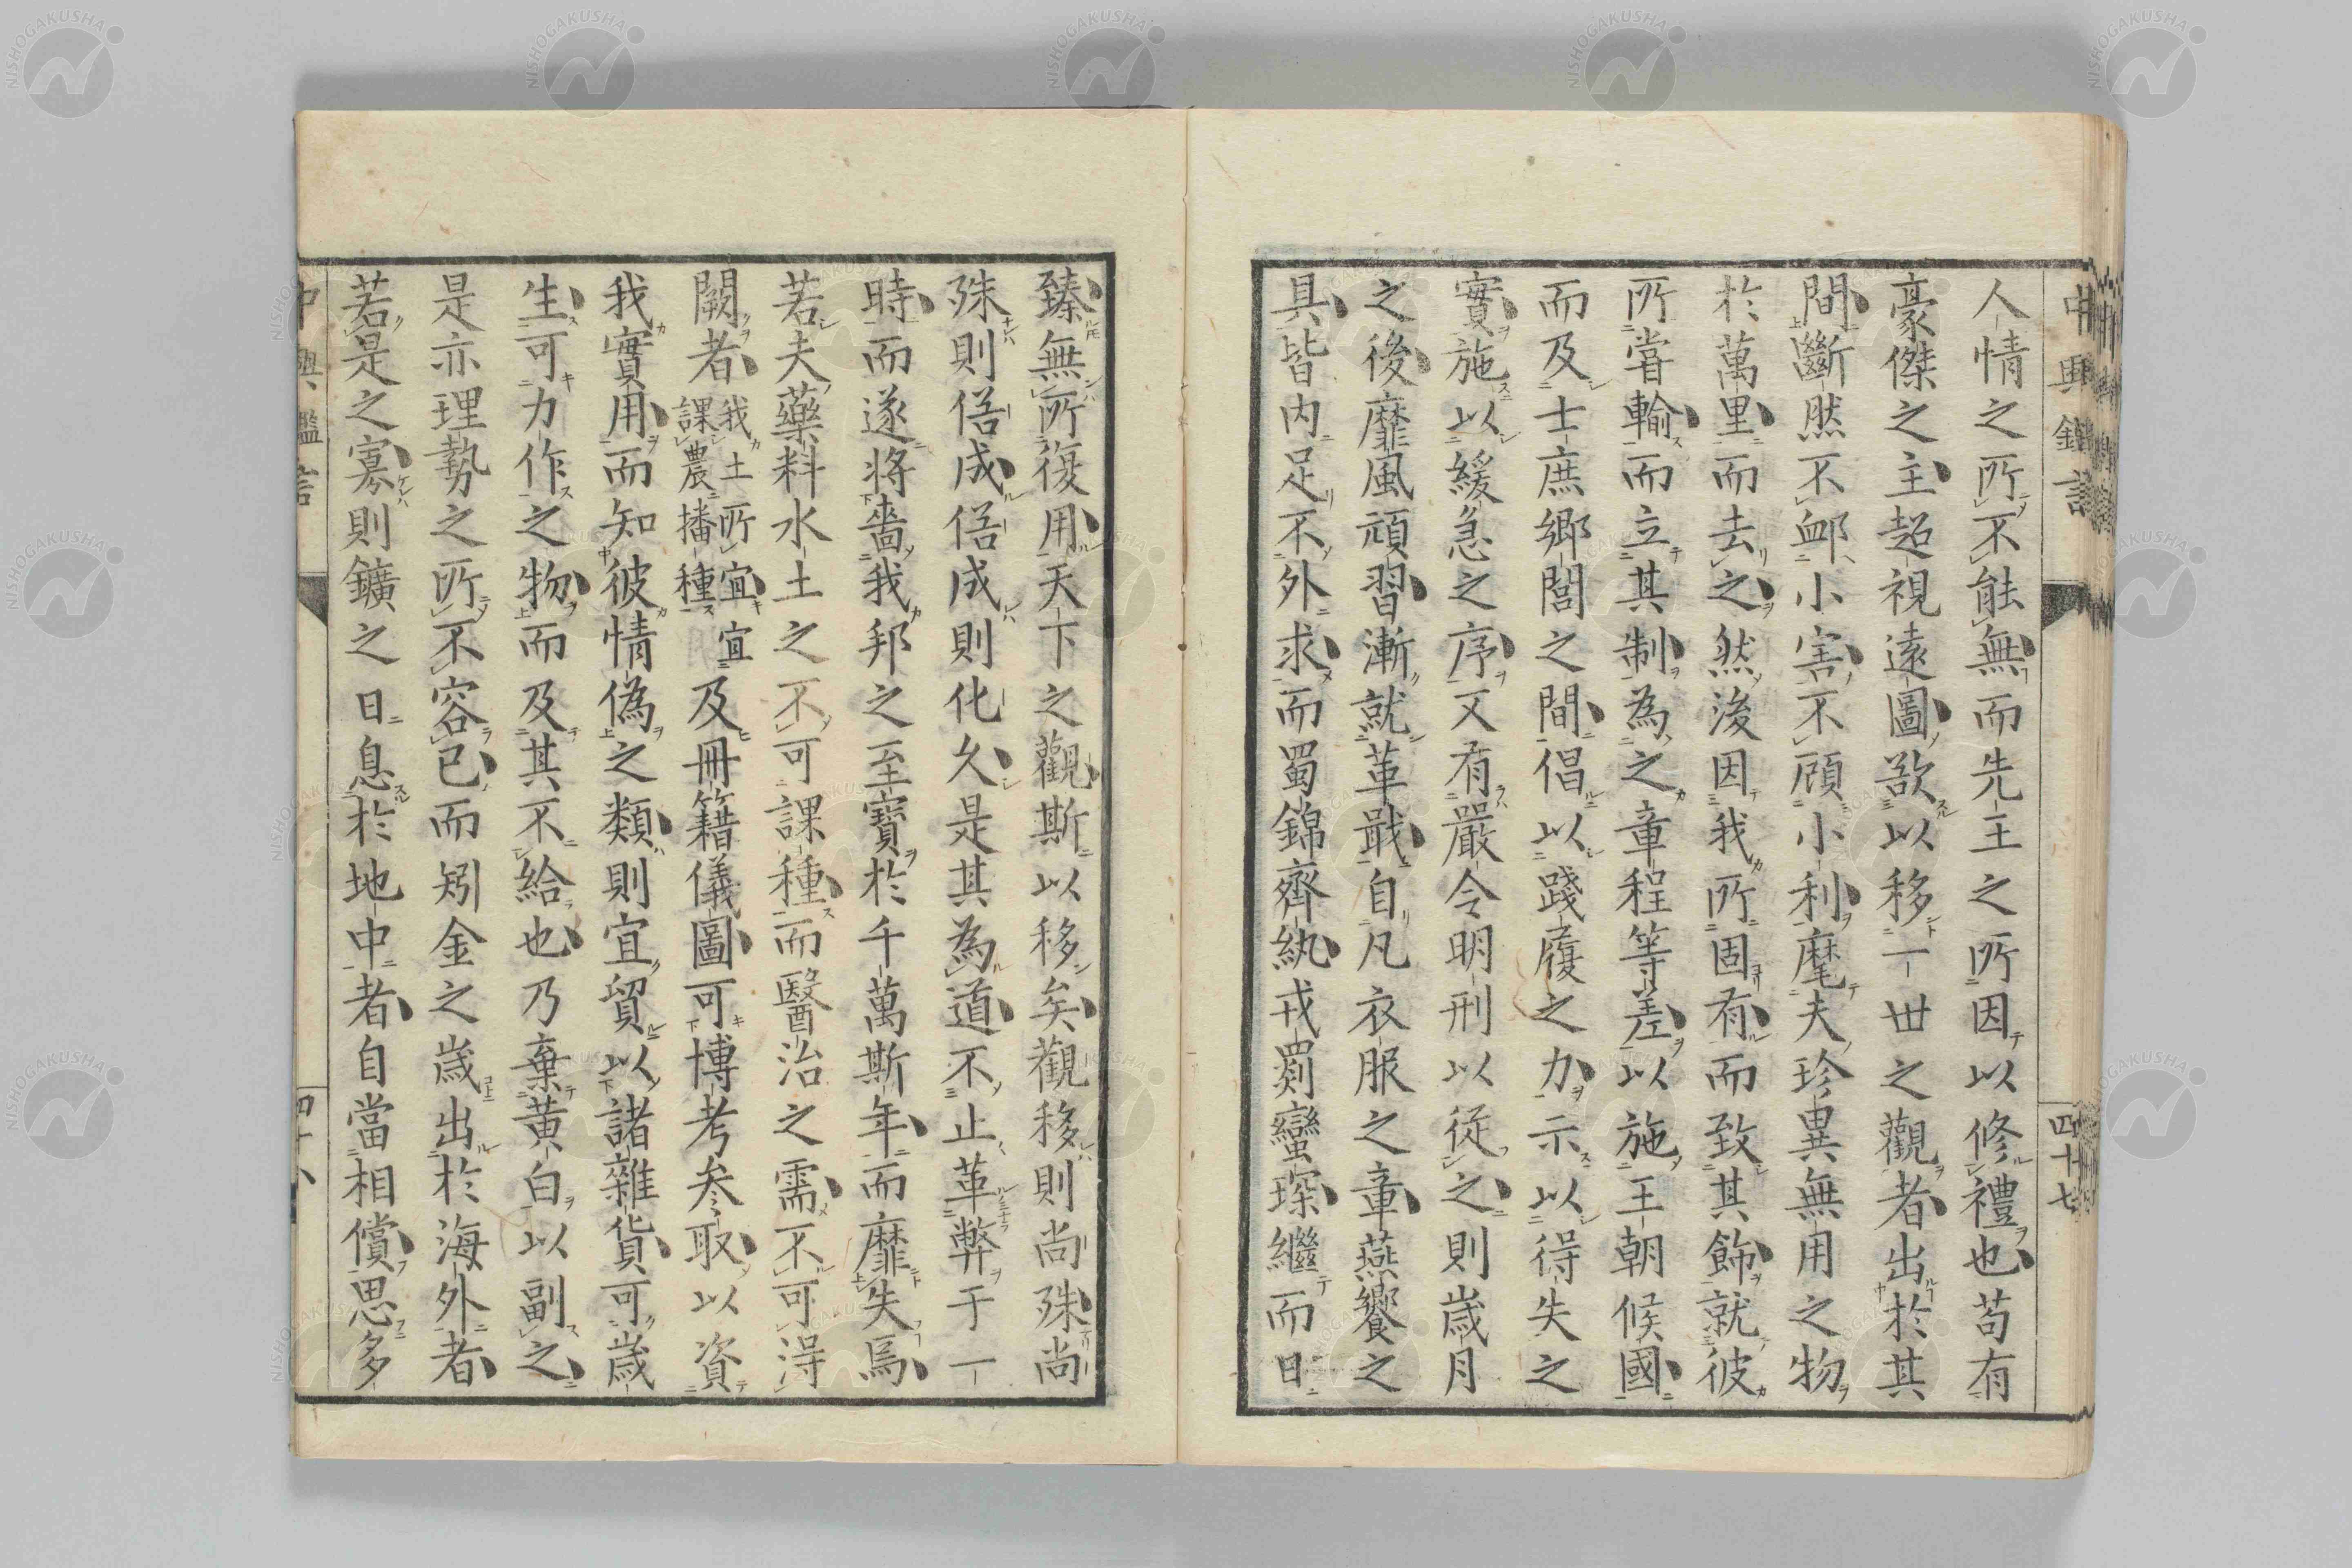 中興鑑言
四十七
人情之所不能無而先王之所因以修禮也苟有
豪傑之主超視遠圖欲以移一世之觀者出於其
間斷然不卹小害不顧小利麾夫珍異無用之物
於萬里而去之然後因我所固有而致其飾就彼
所嘗輸而立其制為之章程等差以施王朝候國
而及士庶鄉閭之間倡以踐履之力示以得失之
實施以緩急之序又有嚴令明刑以從之則歲月
之後靡風頑習漸就革戢自凡衣服之章燕饗之
具皆内足不外求而蜀錦齊紈戎罽蠻琛繼而日
臻無所復用天下之觀斯以移矣觀移則尚殊尚
殊則俗成俗成則化久是其為道不止革弊于一
時而遂將嗇我邦之至寶於千萬斯年而靡失焉
若夫藥料水土之不可課種而醫治之需不可得
闕者我土所宜宜課農播種及冊籍儀圖可博考參取以資
我實用而知彼情偽之類則宜貿以諸雜貨可歲
生可力作之物而及其不給也乃棄黄白以副之
是亦理勢之所不容已而矧金之歲出於海外者
若是之寡則鑛之日息於地中者自當相償思多
中興鑑言
四十八
NISHOGAKUSHA